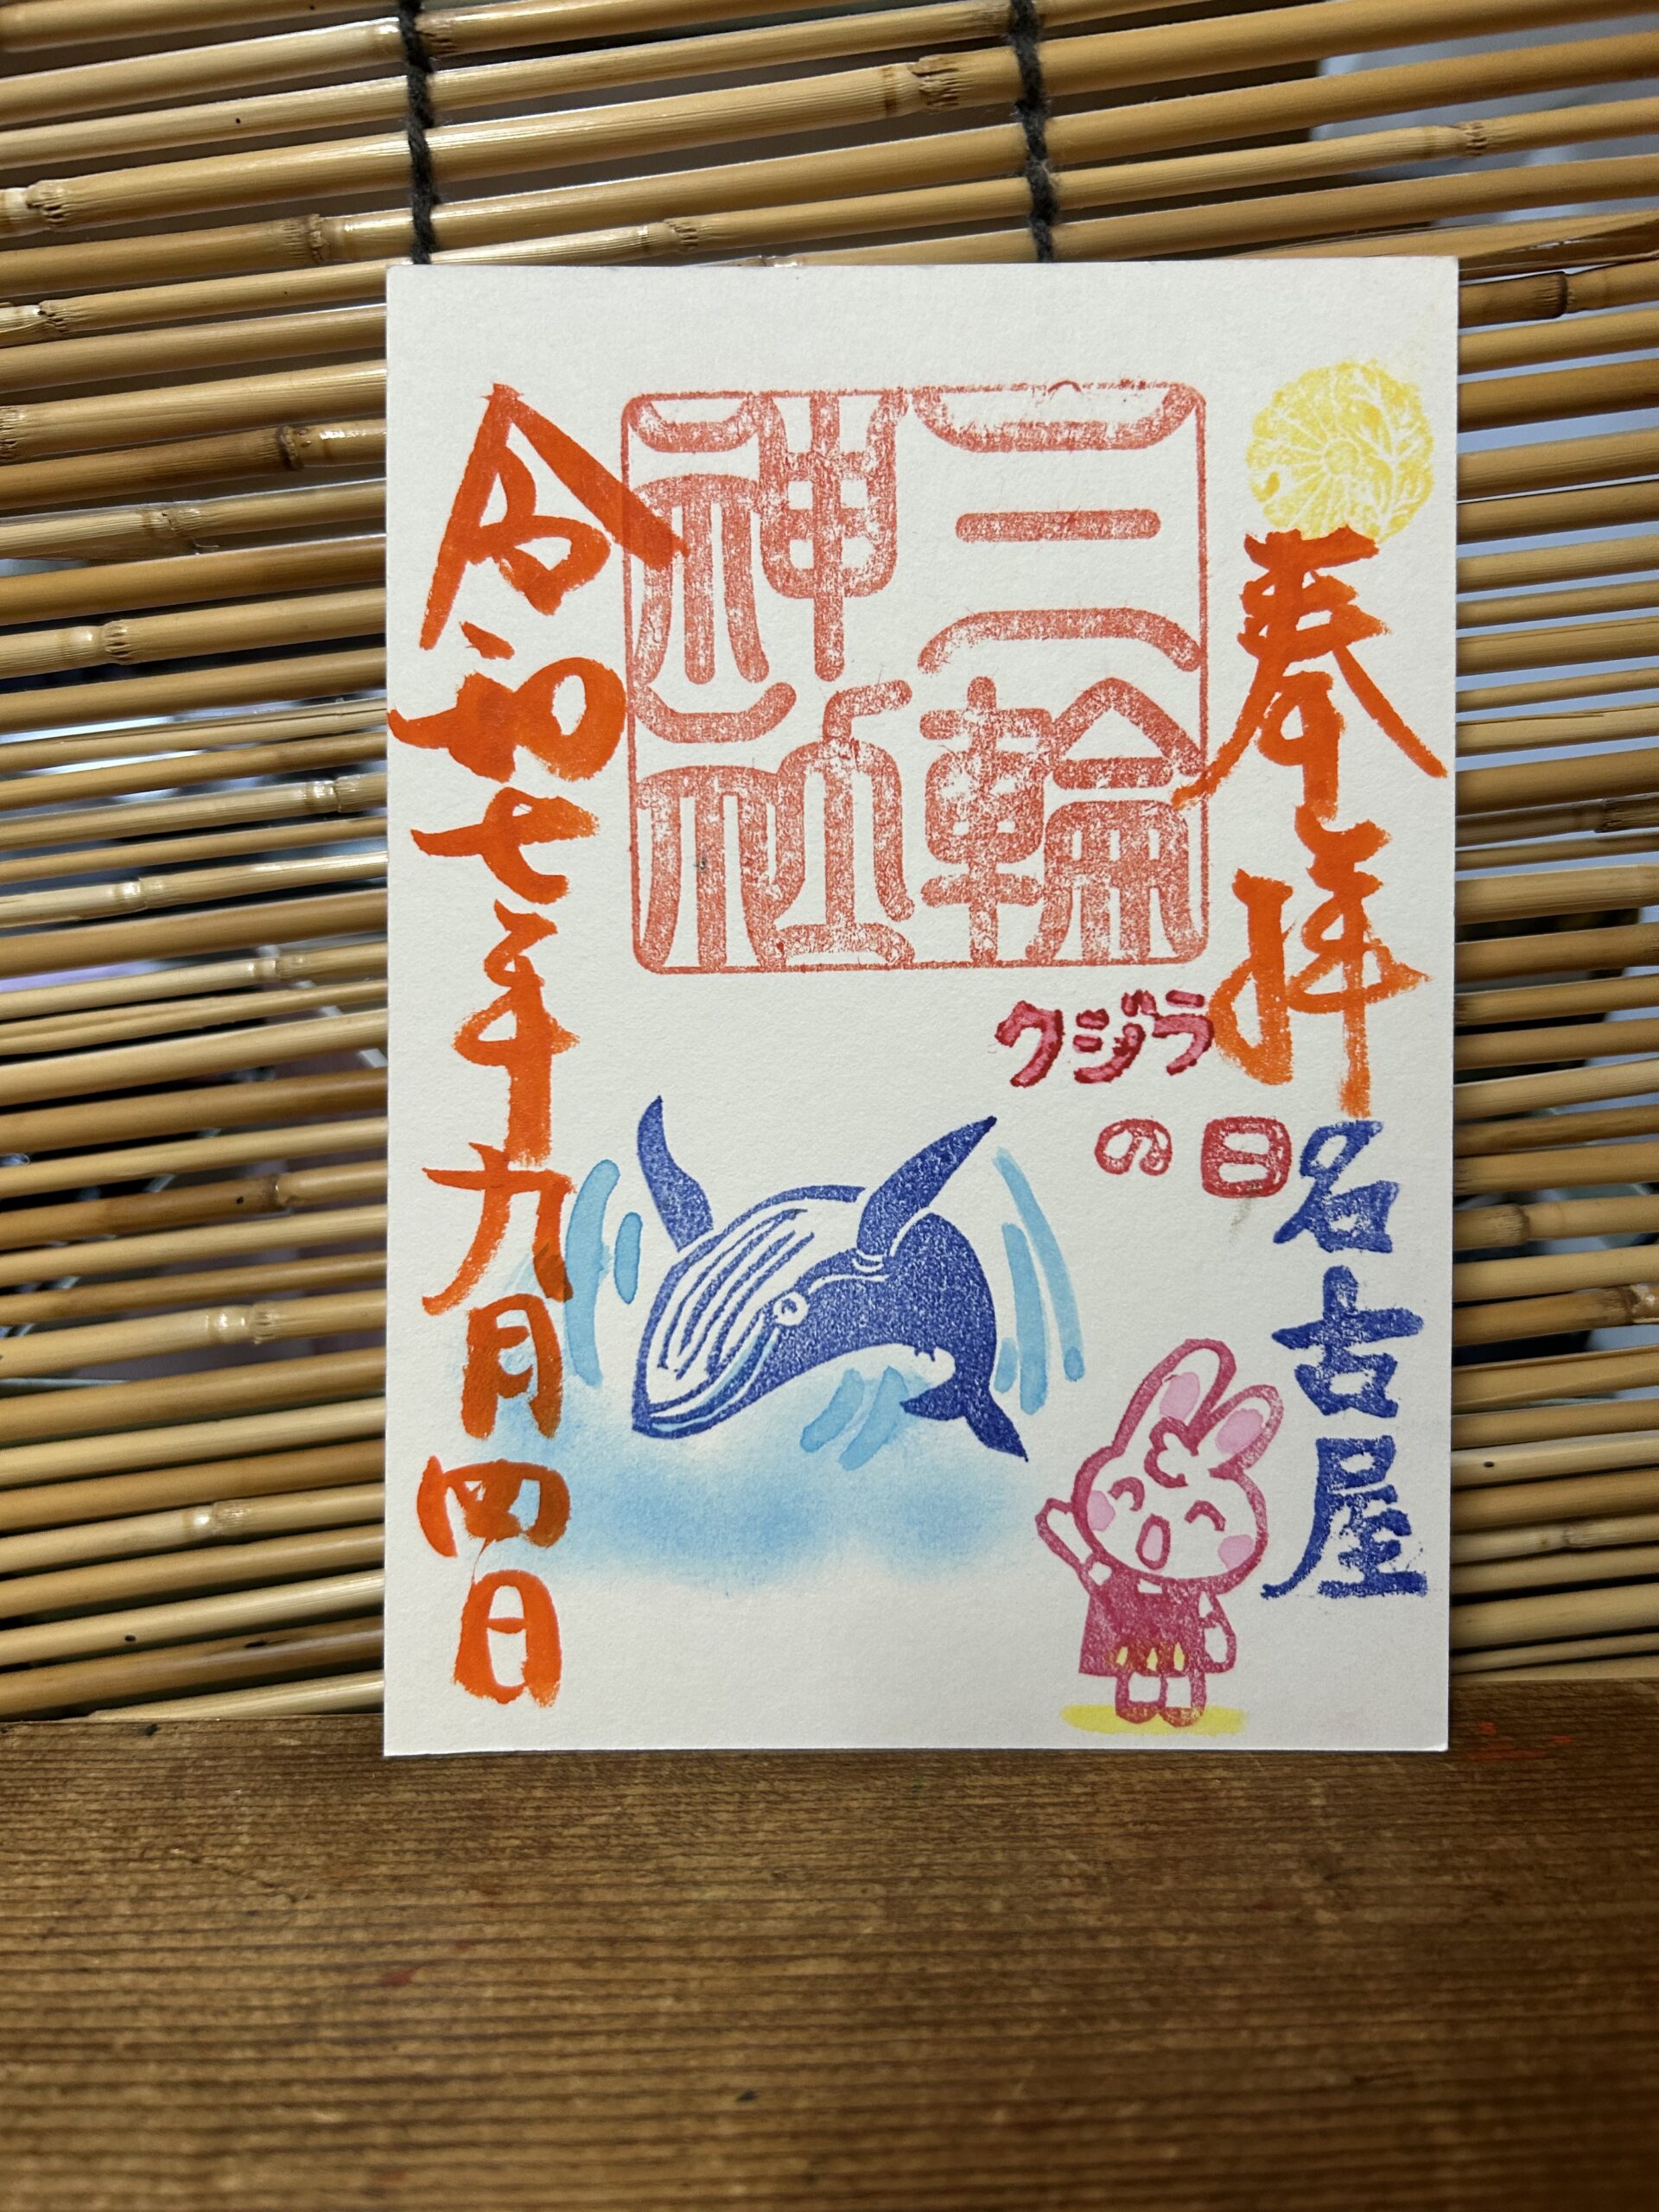 奉拝
名古屋
三輪
神社
クジラ
の日
令和七年九月四日